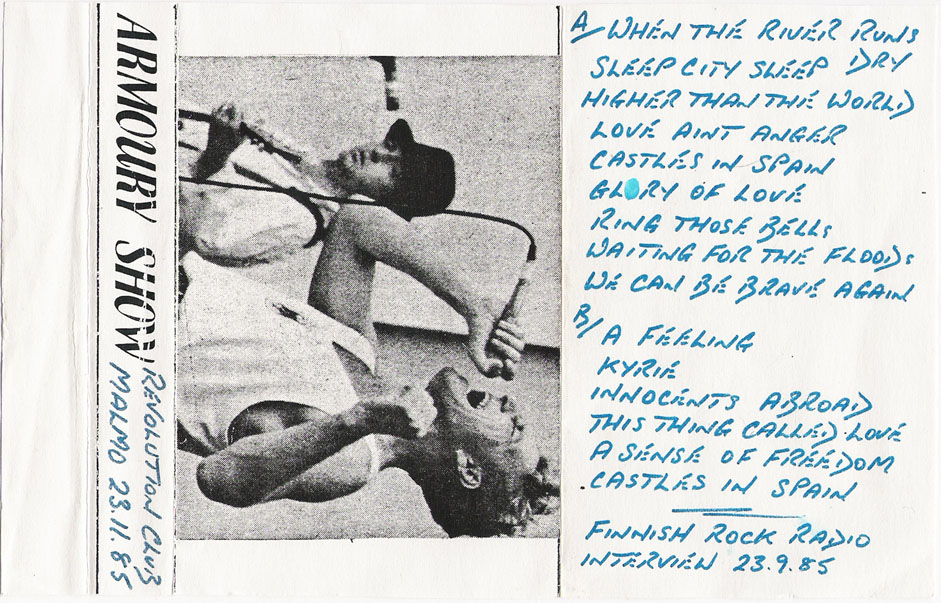 ARMOURY SHOW
REVOLUTION CLUB
MALMO 23.11.85
A/ WHEN THE RIVER RUNS
DRY
SLEEP CITY SLEEP
HIGHER THAN THE WORLD
LOVE AINT ANGER
CASTLES IN SPAIN
GLORY OF LOVE
RING THOSE BELLS
WAITING FOR THE FLOODS
WE CAN BE BRAVE AGAIN
B/ A FEELING
KYRIE
INNOCENTS ABROAD
THIS THING CALLED LOVE
A SENSE OF FREEDOM
CASTLES IN SPAIN
FINNISH ROCK RADIO
INTERVIEW 23.9.85